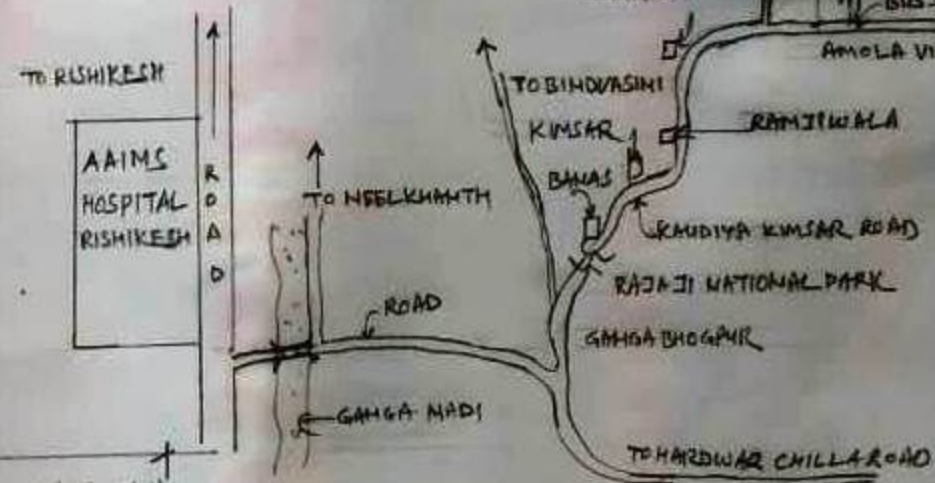 TO RISHIKESH
AAIMS
HOSPITAL
RISHIKESH
ROAD
TO NEELKHANTH
ROAD
GANGA NADI
TO BINDVASINI
KIMSAR
BANAS
AMOLA VI
RAMJIWALA
KAUDIYA KIMSAR ROAD
RAJAJI NATIONAL PARK
GANGA BHOGPUR
TO HARDWAR CHILLA ROAD